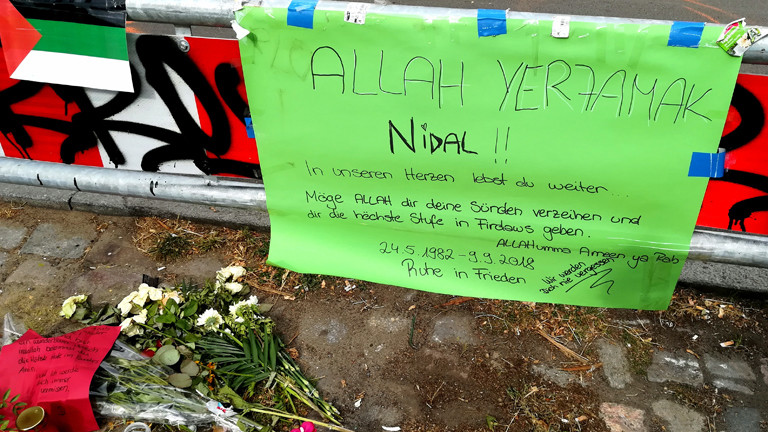 ALLAH YER7AMAK
NiDAL !!
In unseren Herzen lebst du weiter...
Möge ALLAH dir deine Sünden verzeihen und
dir die höchste Stufe in Firdaws geben.
ALLAHumma Ameen ya Rab
24.5.1982 - 9.9.2018
Ruhe in Frieden
Wir werden
dich nie vergessen